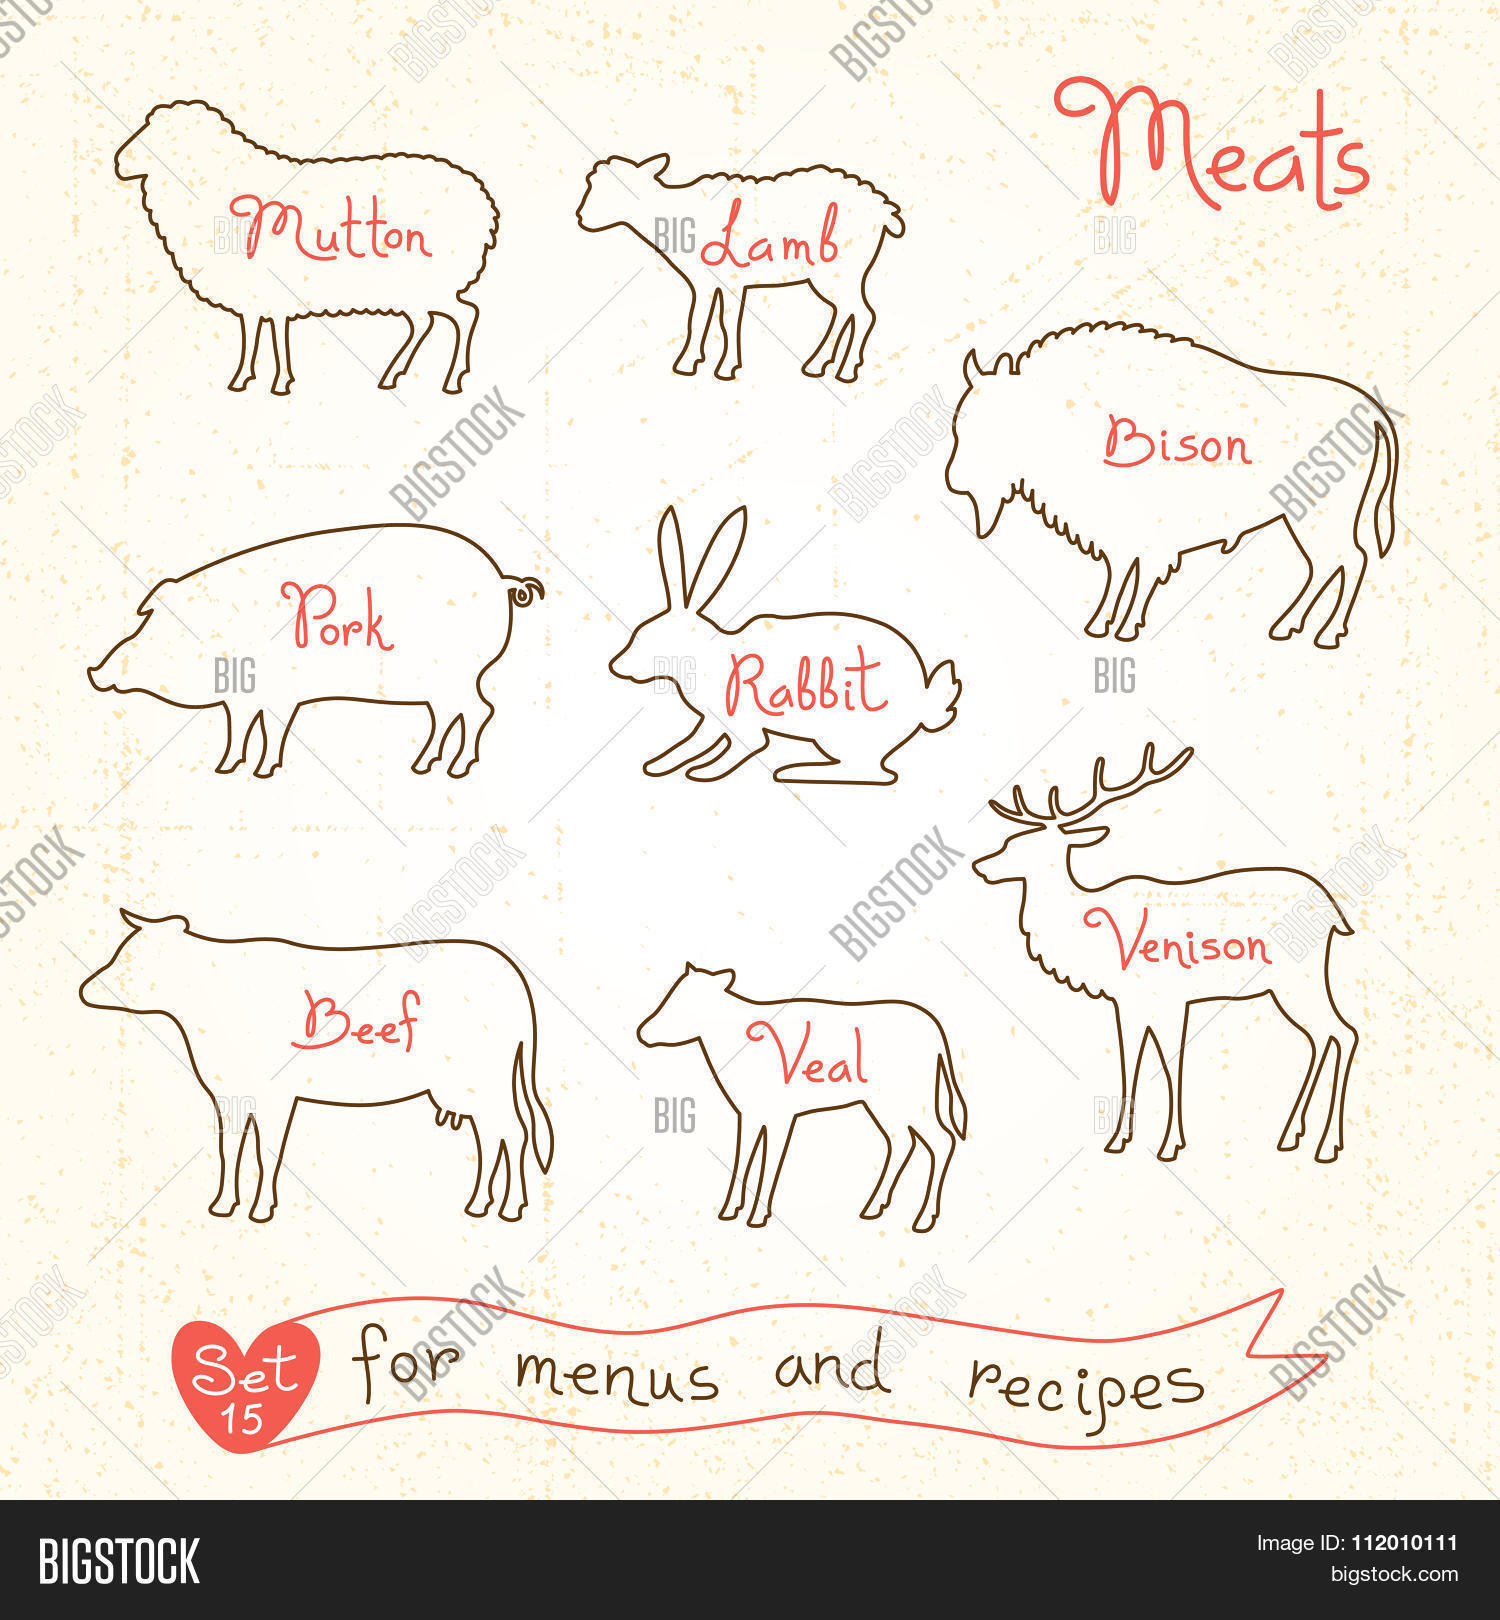 Meats
Mutton
Lamb
Bison
Pork
Rabbit
Venison
Beef
Veal
Set
15
for menus and recipes
BIGSTOCK
Image ID: 112010111
bigstock.com